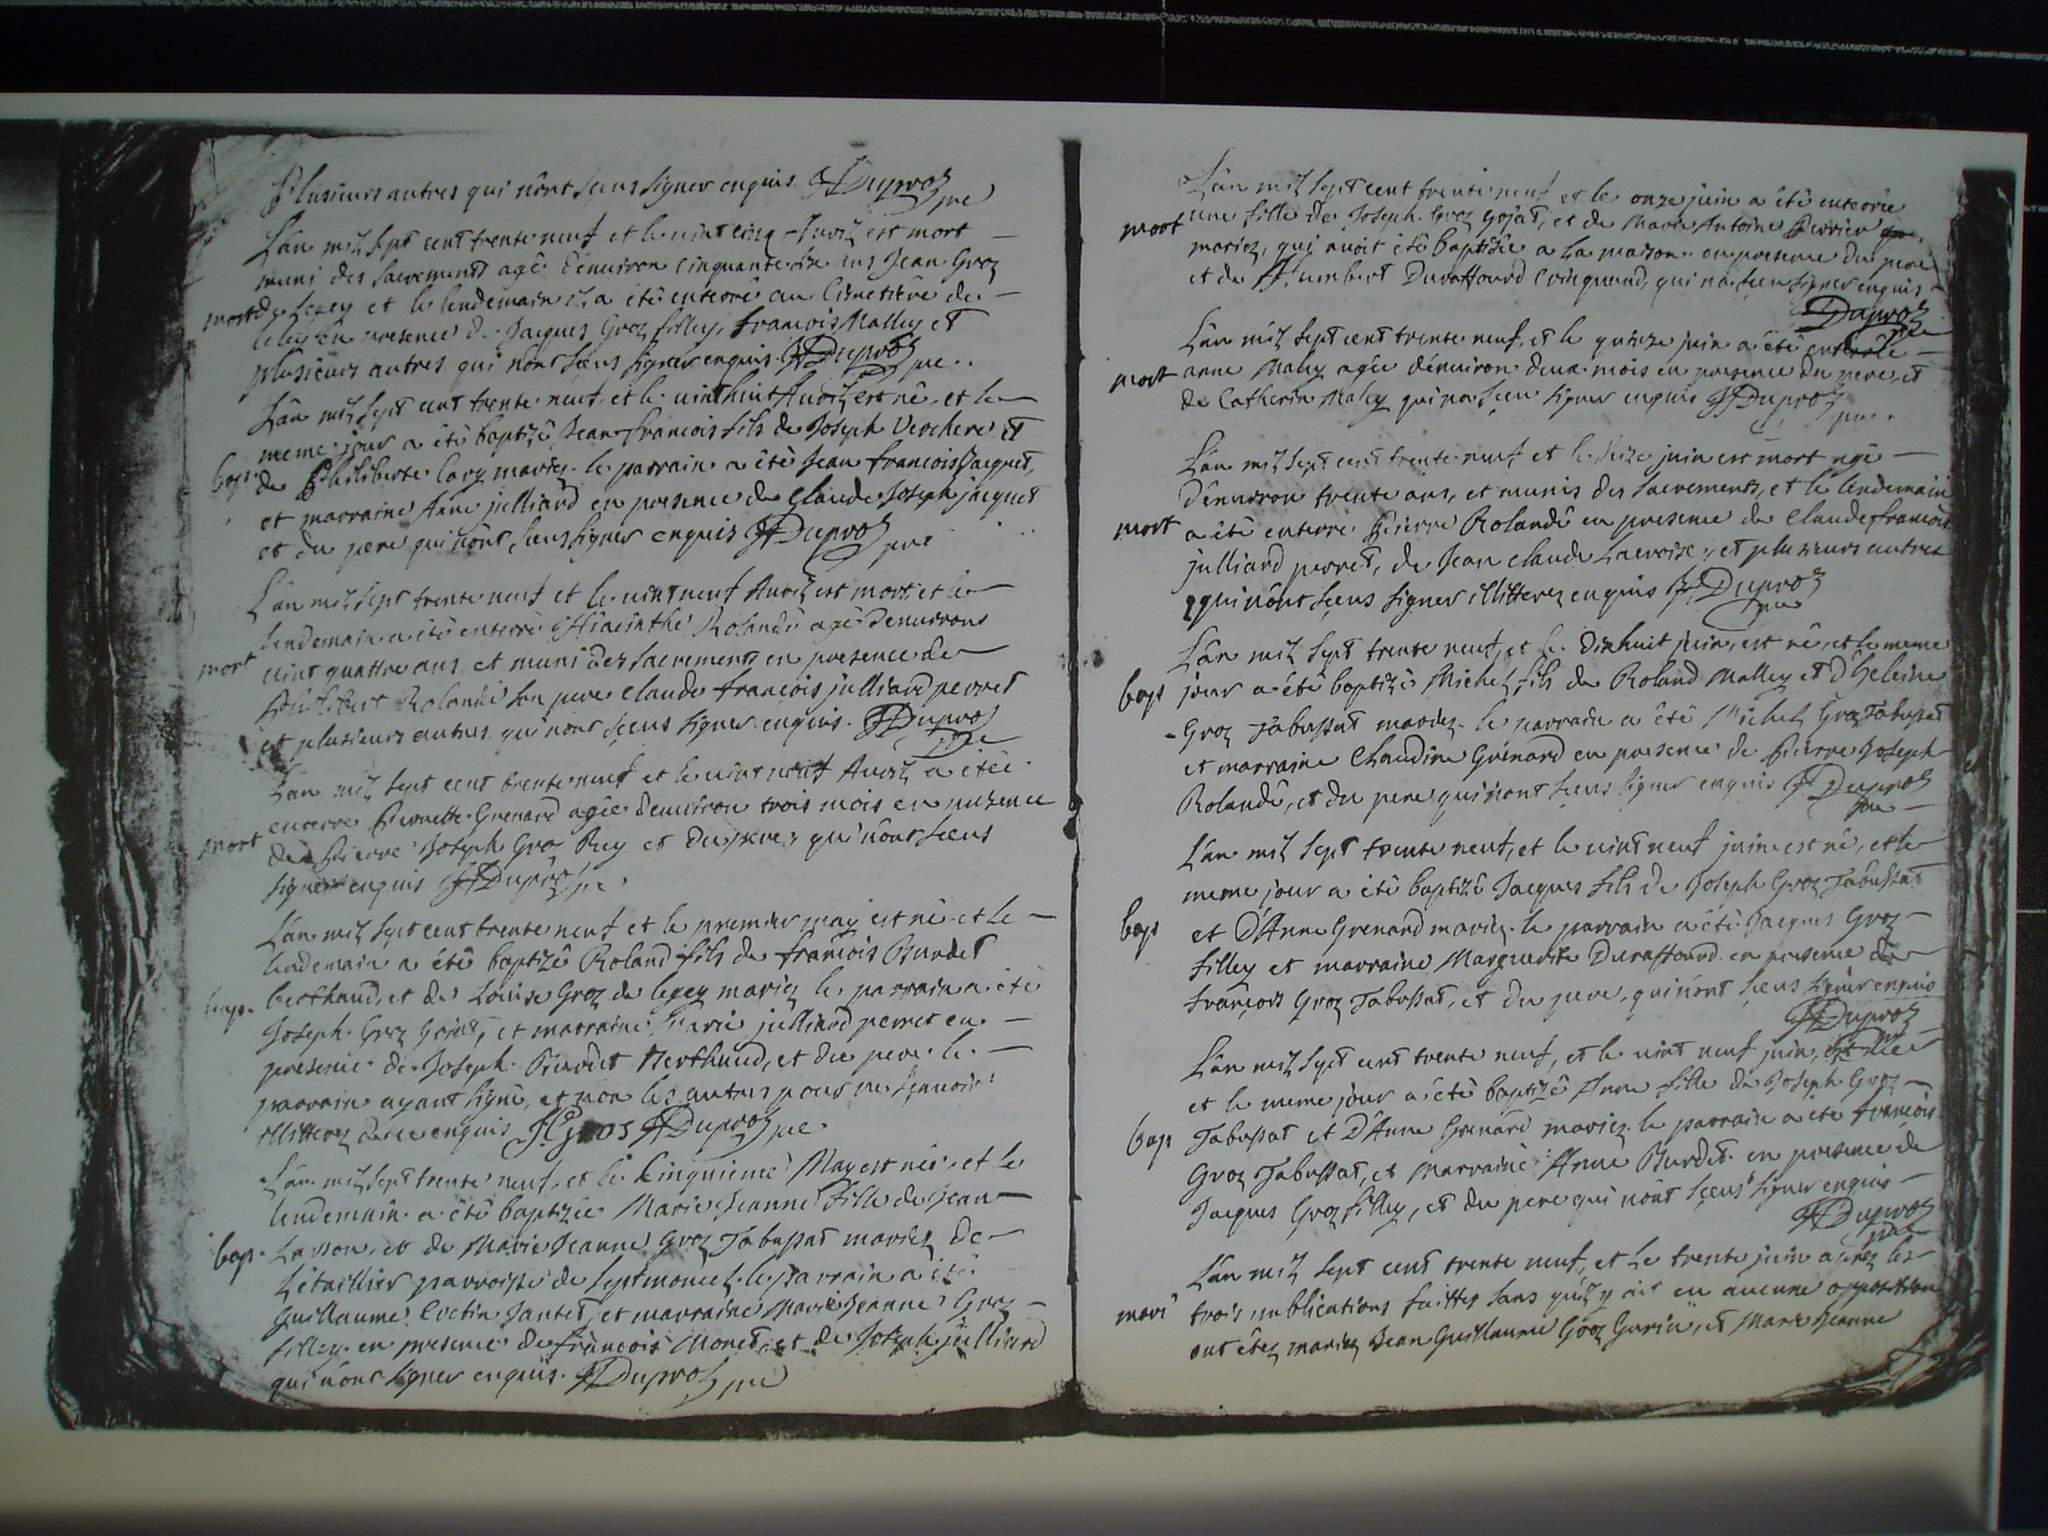 Plusieurs autres qui nônt sceus signer enquis JJDuproz pre
Lân mil sept cent trente neuf et le vint cinq Avril est mort
muni des sacrements agé d'environ cinquante six ans Jean Groz
mort de Legey et le lendemain il a été enterré au Cimetière de
en presence de Jacques Groz filley, francois Malley et
plusieurs autres qui nônt sceus signer enquis JJDuproz pre.
Lân mil sept cent trente neuf et le vinthuit Avril est né, et le
meme jour a été baptizé Jean francois fils de Joseph Verchere et
bap. de Philiberte Cary mariez. le parrain a été Jean francois Jacquet,
et marraine Anne julliard en presence de Claude Joseph jacquet
et du pere qui nônt sceus signer enquis JJDuproz pre
Lân mil sept trente neuf et le vint neuf Avril est mort et le
lendemain a été enterré Hiacinthe Rolandé agé denvirons
mort vint quattre ans et muni des sacrements en presence de
Philibert Rolandé son pere Claude francois julliard perret
et plusieurs autres qui nônt sceus signer enquis. JJDuproz pre
Lân mil sept cent trente neuf et le vint neuf Avril a étée
enterré Pierrette Grenard agée denviron trois mois en presence
mort de Pierre Joseph Groz Rey et du pere, qui nônt sceus
signer enquis JJDuproz pre.
Lân mil sept cent trente neuf et le premier may est né et le
lendemain a été baptizé Roland fils de francois Burdet
bap. berthaud, et de Louise Groz de legey mariez le parrain a été
Joseph Groz Gojat, et marraine Marie julliard perret en
presence de Joseph Burdet Berthaud, et du pere. le
parrain ayant signé, et non les autres pour ne sçavoir
illitterez de ce enquis J.Gros JJDuproz pre.
Lân mil sept trente neuf, et le Cinquieme May est née et le
lendemain a été baptizée Marie Jeanne fille de Jean
bap. Lasson, et de Marie Jeanne Groz Tabussat mariez de
Létaillier parroisse de Septmoncel. le parrain a été
Guillaume Cretin Jantet, et marraine Marie Jeanne Groz
filley en presence de francois Monet, et de Joseph julliard
qui nônt signer enquis. JJDuproz pre
Lân mil sept cent trente neuf et le onze juin a été enterrée
mort une fille de Joseph Groz Gojat, et de Marie Antoine Perrier
mariez, qui avoit été baptizée a la maison en presence du pere
et de Humbert Duraffourd Crinquand, qui na sceu signer enquis
JJDuproz pre
Lân mil sept cent trente neuf, et le quinze juin a été enterrée
mort anne Maley agée dénviron deux mois en presence du pere, et
de Catherin Maley qui na sceu signer enquis JJDuproz pre.
Lân mil sept cent trente neuf et le seize juin est mort agé
Dénviron trente ans, et munis des sacrements, et le lendemain
mort a été enterré Pierre Rolandé en presence de Claude francois
julliard perret, de Jean Claude Lacroix, et plusieurs autres
qui nônt sçeus signer illitterez enquis JJDuproz pre
Lân mil sept trente neuf, et le Dixhuit juin, est né, et le meme
bap jour a été baptizé Michel fils de Roland Malley et d'heleine
Groz Tabussat mariez. le parrain a été Michel Groz Tabussat
et marraine Claudine Grénard en presence de Pierre Joseph
Rolandé, et du pere qui nônt sceus signer enquis JJDuproz pre
Lân mil sept trente neuf, et le vint neuf juin est né, et le
meme jour a été baptizé Jacques fils de Joseph Groz Tabussat
bap et D'Anne Grenard mariez. le parrain a été Jacques Groz
filley et marraine Marguerite Duraffourd en presence de
françois Groz Tabussat, et du pere, qui nônt sceus signer enquis
JJDuproz pre
Lân mil sept cent trente neuf, et le vint neuf juin, est née
et le meme jour a été baptizé Anne fille de Joseph Groz
bap Tabussat et D'Anne Grenard mariez. le parrain a été francois
Groz Tabussat, et Marraine Anne Burdet en presence de
Jacques Groz filley, et du pere qui nônt sçeus signer enquis
JJDuproz pre
Lân mil sept cent trente neuf, et le trente juin aprez les
mari trois publications faittes sans quil y ait eu aucune opposition
ont étez mariez Jean Guillaume Groz Gurin, et Marie Jeanne